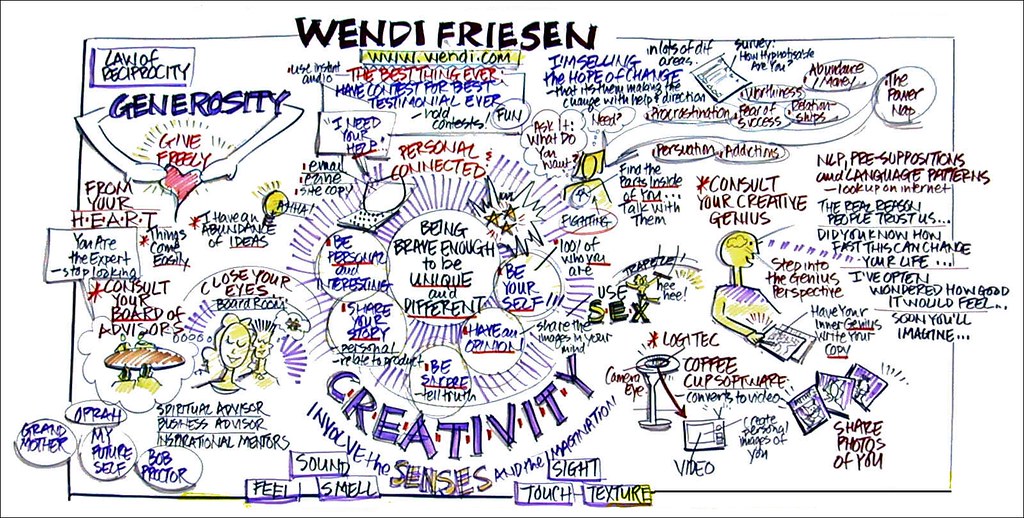 WENDI FRIESEN
www.wendi.com
LAW OF
RECIPROCITY
GENEROSITY
GIVE
FREELY
FROM
YOUR
H.E.A.R.T
You Are
the Expert
- stop looking
* Things
Come
Easily
AHHA!
* I Have an
ABUNDANCE
of IDEAS
* CONSULT
YOUR
BOARD of
ADVISORS
CLOSE YOUR
EYES
BOARD ROOM
SPIRITUAL ADVISOR
BUSINESS ADVISOR
INSPIRATIONAL MENTORS
OPRAH
GRAND
MOTHER
MY
FUTURE
SELF
BOB
PROCTOR
• use instant
audio
THE BEST THING EVER:
HAVE CONTEST FOR BEST
TESTIMONIAL EVER
- Hold
contests!
FUN
"I NEED
YOUR
HELP"
• email
• site copy
PERSONAL &
CONNECTED
BEING
BRAVE ENOUGH
to be
UNIQUE
and
DIFFERENT
• BE
PERSONAL
and
INTERESTING
• SHARE
YOUR
STORY
- personal
- relate to product
• BE
SINCERE
- tell truth
• HAVE an
OPINION!
• BE
YOUR
SELF!!!
• 100% of
who you
are
CREATIVITY
INVOLVE the SENSES AND the IMAGINATION
SOUND
FEEL
SMELL
SIGHT
TOUCH
TEXTURE
I'M SELLING
THE HOPE OF CHANGE
- that it's them making the
change with help & direction
in lots of dif
areas.
survey:
How Hypnotisable
Are You?
Abundance/
More!
Worthiness
Procrastination
Fear of
Success
Relation-
ships
The
Power
Nap
Persuation
Addictins
Ask It:
What Do
You
Want?
Need?
FIGHTING
Find the
Parts Inside
of You...
Talk with
Them
TRAPEZE!!
USE
S.E.X
hee
hee!
share the
images in your
mind
* CONSULT
YOUR CREATIVE
GENIUS
Step into
the Genius
Perspective
Have Your
Inner Genius
Write Your
COPY
NLP, PRE-SUPPOSITIONS
and LANGUAGE PATTERNS
- look up on internet
THE REAL REASON
PEOPLE TRUST US...
DID YOU KNOW HOW
FAST THIS CAN CHANGE
YOUR LIFE...
I'VE OFTEN
WONDERED HOW GOOD
IT WOULD FEEL...
SOON YOU'LL
IMAGINE...
* LOGITEC
Camera
Eye
COFFEE
CUP SOFTWARE
- converts to video
VIDEO
Create
personal
images of
you
SHARE
PHOTOS
OF YOU